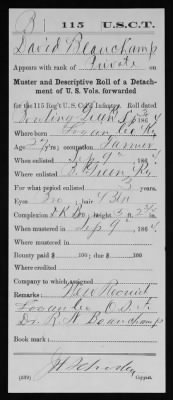 B | 115 | U.S.C.T.
David Beauchamp
Appears with rank of Private on
Muster and Descriptive Roll of a Detachment of U. S. Vols. forwarded
for the 115 Reg't U.S. Col'd Infantry. Roll dated
Bowling Green Sept 186
Where born Logan Co Ky.
Age 24 y'rs; occupation Farmer
When enlisted Sep 9, 1864
Where enlisted B. Green, Ky.
For what period enlisted 3 years.
Eyes Bro; hair Blk
Complexion ; height 5 ft. in.
When mustered in Sep 9, 1864
Where mustered in
Bounty paid $ 100; due $ 100
Where credited
Company to which assigned
Remarks: New Recruit
R. H. Beauchamp
Book mark:
(339) Copyist.